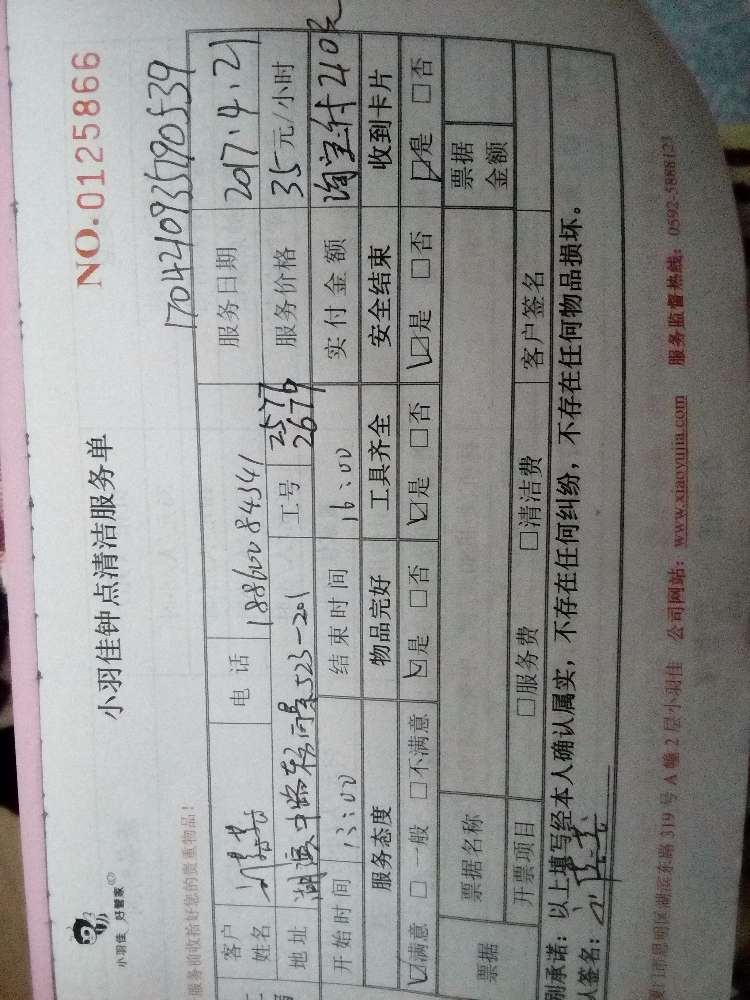 小羽佳 好管家
小羽佳钟点清洁服务单
NO.0125866
服务前收拾好您的贵重物品!
1704210935790539
客户姓名 电话 18860084341 服务日期 2017.4.21
地址 523-201 工号 2679 服务价格 35元/小时
开始时间 13:00 结束时间 16:00 实付金额 淘宝付210元
服务态度 物品完好 工具齐全 安全结束 收到卡片
☑满意 □一般 □不满意 ☑是 □否 ☑是 □否 ☑是 □否 ☑是 □否
票据 票据名称 票据金额
开票项目 □服务费 □清洁费 客户签名
别承诺:以上填写经本人确认属实,不存在任何纠纷,不存在任何物品损坏。
人签名:
厦门市思明区湖滨东路319号A幢2层小羽佳 公司网站:www.xiaoyujia.com 服务监督热线:0592-5888123